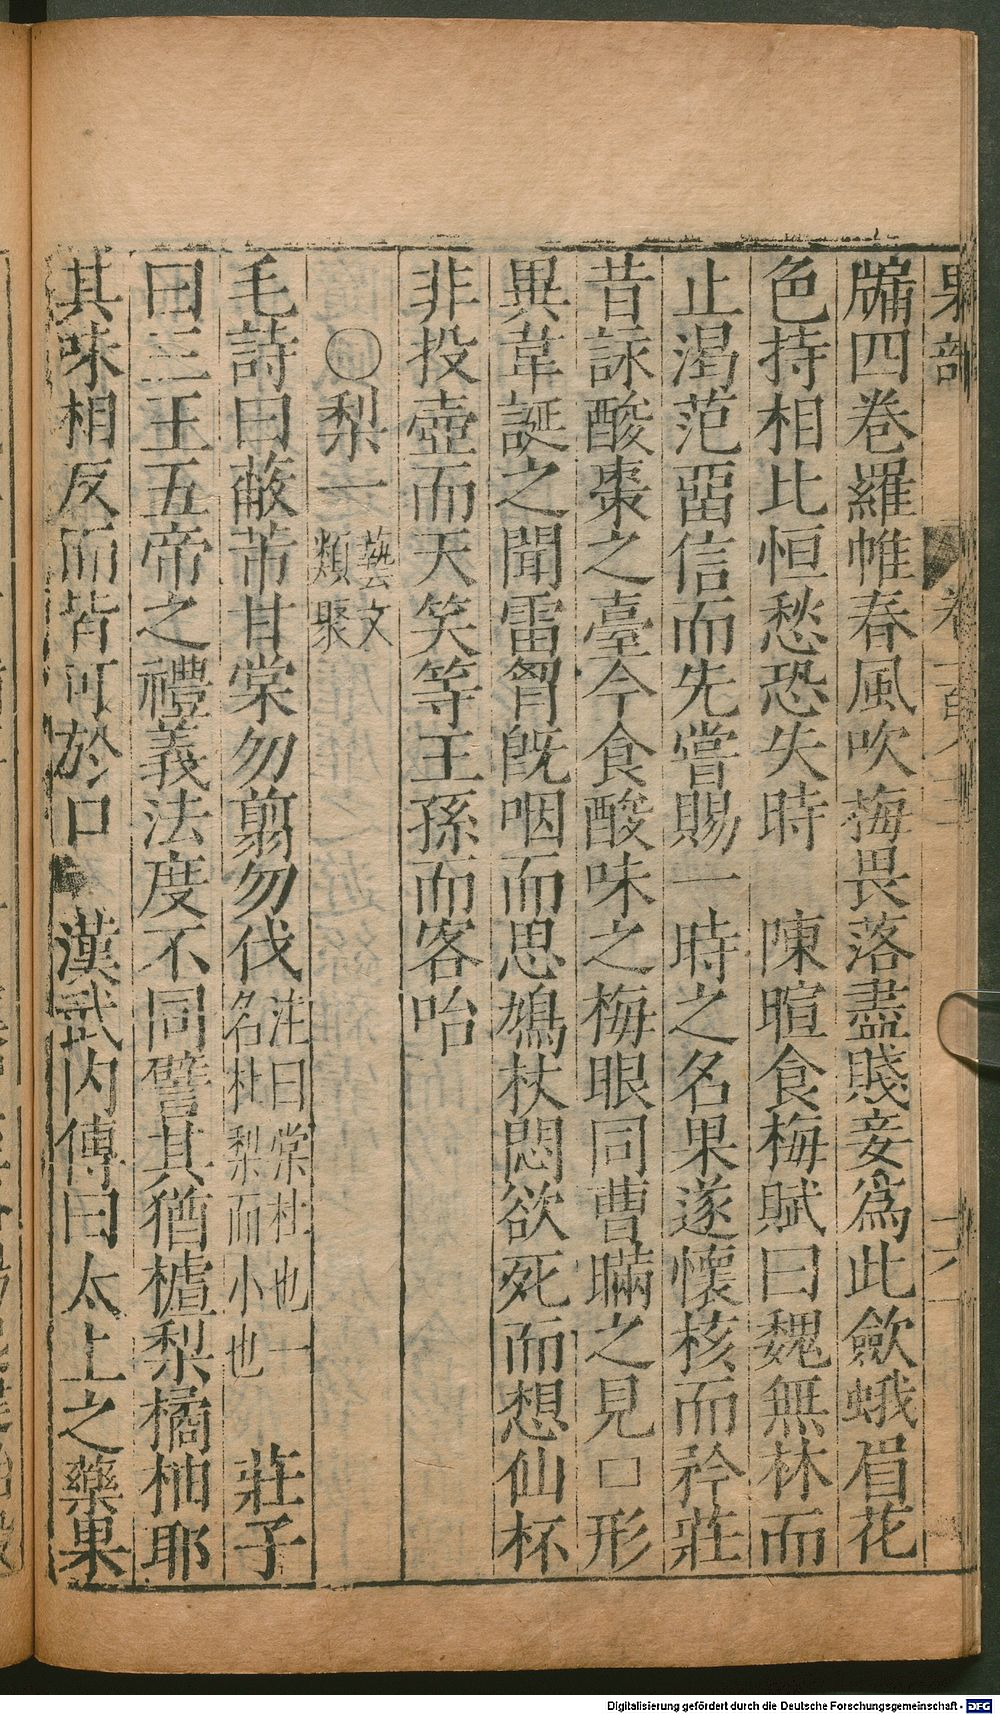 果部
牖四卷羅帷春風吹梅畏落盡賤妾為此歛蛾眉花
色持相比恒愁恐失時　陳暄食梅賦曰魏無林而
止渴范畱信而先嘗賜一時之名果遂懷核而矜莊
昔詠酸棗之臺今食酸味之梅眼同曹瞞之見口形
異韋誕之聞雷胷旣咽而思鳩杖悶欲死而想仙杯
非投壺而天笑等王孫而客咍
○梨一　藝文類聚
毛詩曰蔽芾甘棠勿翦勿伐　注曰棠杜也一名杜梨而小也　莊子
曰三王五帝之禮義法度不同譬其猶樝梨橘柚耶
其味相反而皆可於口　漢武内傳曰太上之藥果
Digitalisierung gefördert durch die Deutsche Forschungsgemeinschaft - DFG